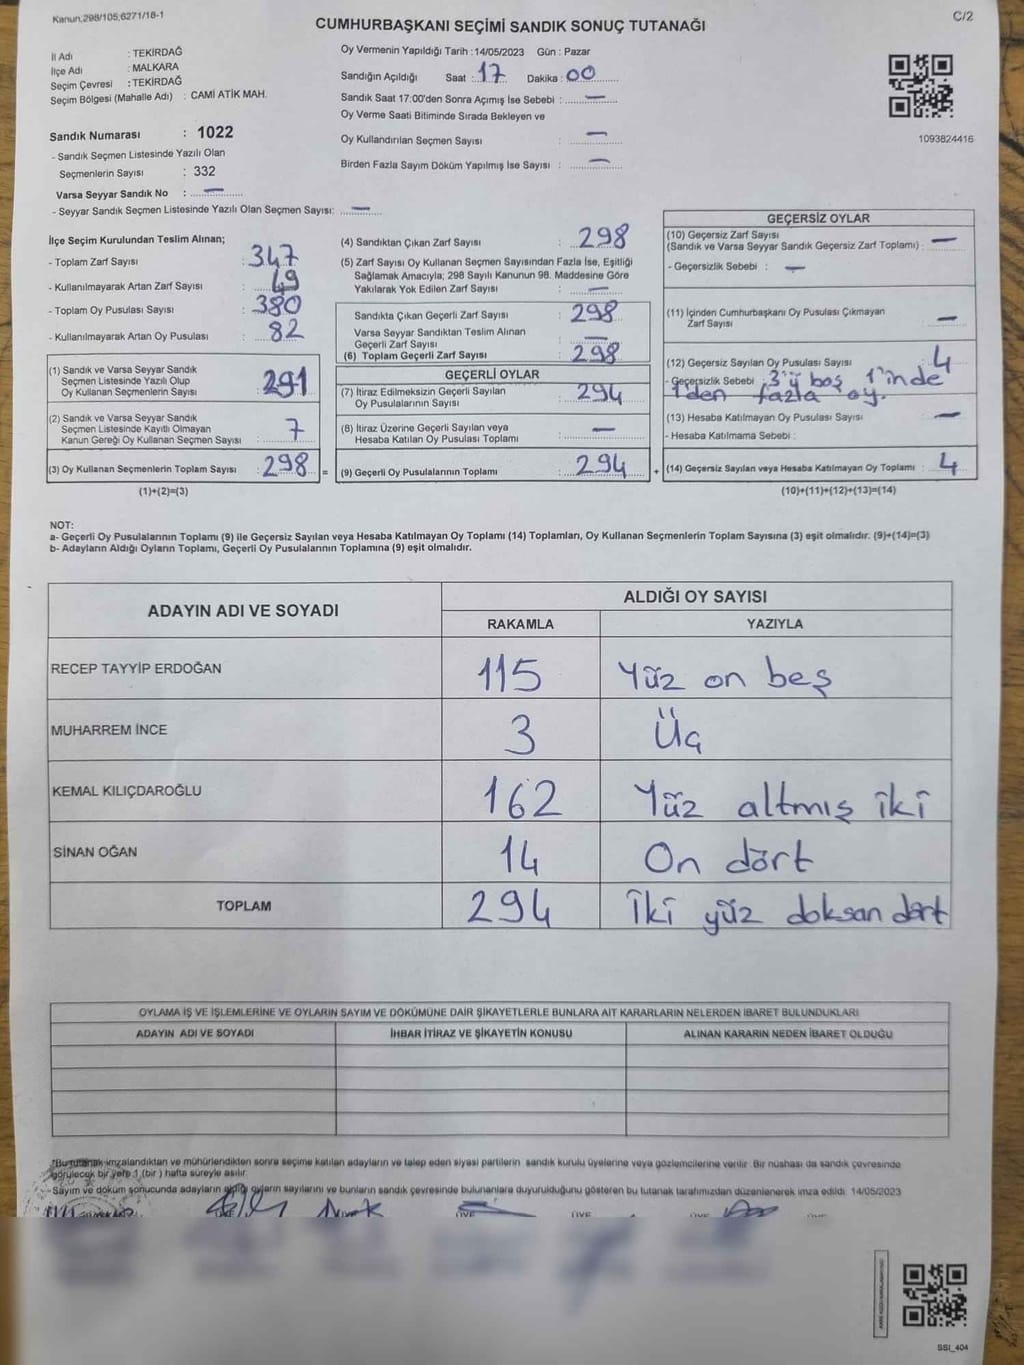 Kanun,298/105,6271/18-1
C/2
CUMHURBAŞKANI SEÇİMİ SANDIK SONUÇ TUTANAĞI
İl Adı : TEKİRDAĞ
İlçe Adı : MALKARA
Seçim Çevresi : TEKİRDAĞ
Seçim Bölgesi (Mahalle Adı) : CAMİ ATİK MAH.
Sandık Numarası : 1022
- Sandık Seçmen Listesinde Yazılı Olan
Seçmenlerin Sayısı : 332
Varsa Seyyar Sandık No : —
- Seyyar Sandık Seçmen Listesinde Yazılı Olan Seçmen Sayısı: —
Oy Vermenin Yapıldığı Tarih : 14/05/2023 Gün : Pazar
Sandığın Açıldığı Saat : 17 Dakika : 00
Sandık Saat 17:00'den Sonra Açımış İse Sebebi : —
Oy Verme Saati Bitiminde Sırada Bekleyen ve
Oy Kullandırılan Seçmen Sayısı : —
Birden Fazla Sayım Döküm Yapılmış İse Sayısı : —
1093824416
İlçe Seçim Kurulundan Teslim Alınan;
- Toplam Zarf Sayısı : 347
- Kullanılmayarak Artan Zarf Sayısı : 49
- Toplam Oy Pusulası Sayısı : 380
- Kullanılmayarak Artan Oy Pusulası : 82
(1) Sandık ve Varsa Seyyar Sandık
Seçmen Listesinde Yazılı Olup
Oy Kullanan Seçmenlerin Sayısı : 291
(2) Sandık ve Varsa Seyyar Sandık
Seçmen Listesinde Kayıtlı Olmayan
Kanun Gereği Oy Kullanan Seçmen Sayısı : 7
(3) Oy Kullanan Seçmenlerin Toplam Sayısı : 298 =
(1)+(2)=(3)
(4) Sandıktan Çıkan Zarf Sayısı : 298
(5) Zarf Sayısı Oy Kullanan Seçmen Sayısından Fazla İse, Eşitliği
Sağlamak Amacıyla; 298 Sayılı Kanunun 98. Maddesine Göre
Yakılarak Yok Edilen Zarf Sayısı : —
Sandıkta Çıkan Geçerli Zarf Sayısı : 298
Varsa Seyyar Sandıktan Teslim Alınan
Geçerli Zarf Sayısı : —
(6) Toplam Geçerli Zarf Sayısı : 298
GEÇERLİ OYLAR
(7) İtiraz Edilmeksizin Geçerli Sayılan
Oy Pusulalarının Sayısı : 294
(8) İtiraz Üzerine Geçerli Sayılan veya
Hesaba Katılan Oy Pusulası Toplamı : —
(9) Geçerli Oy Pusulalarının Toplamı : 294 +
GEÇERSİZ OYLAR
(10) Geçersiz Zarf Sayısı
(Sandık ve Varsa Seyyar Sandık Geçersiz Zarf Toplamı) : —
- Geçersizlik Sebebi : —
(11) İçinden Cumhurbaşkanı Oy Pusulası Çıkmayan
Zarf Sayısı : —
(12) Geçersiz Sayılan Oy Pusulası Sayısı : 4
- Geçersizlik Sebebi : 3'ü boş 1'inde
1'den fazla oy.
(13) Hesaba Katılmayan Oy Pusulası Sayısı : —
- Hesaba Katılmama Sebebi :
(14) Geçersiz Sayılan veya Hesaba Katılmayan Oy Toplamı : 4
(10)+(11)+(12)+(13)=(14)
NOT:
a- Geçerli Oy Pusulalarının Toplamı (9) ile Geçersiz Sayılan veya Hesaba Katılmayan Oy Toplamı (14) Toplamları, Oy Kullanan Seçmenlerin Toplam Sayısına (3) eşit olmalıdır. (9)+(14)=(3)
b- Adayların Aldığı Oyların Toplamı, Geçerli Oy Pusulalarının Toplamına (9) eşit olmalıdır.
ADAYIN ADI VE SOYADI ALDIĞI OY SAYISI
RAKAMLA YAZIYLA
RECEP TAYYİP ERDOĞAN 115 Yüz on beş
MUHARREM İNCE 3 Üç
KEMAL KILIÇDAROĞLU 162 Yüz altmış iki
SİNAN OĞAN 14 On dört
TOPLAM 294 İki yüz doksan dört
OYLAMA İŞ VE İŞLEMLERİNE VE OYLARIN SAYIM VE DÖKÜMÜNE DAİR ŞİKAYETLERLE BUNLARA AİT KARARLARIN NELERDEN İBARET BULUNDUKLARI
ADAYIN ADI VE SOYADI İHBAR İTİRAZ VE ŞİKAYETİN KONUSU ALINAN KARARIN NEDEN İBARET OLDUĞU
*Bu tutanak imzalandıktan ve mühürlendikten sonra seçime katılan adayların ve talep eden siyasi partilerin sandık kurulu üyelerine veya gözlemcilerine verilir. Bir nüshası da sandık çevresinde
görülecek bir yere 1 (bir) hafta süreyle asılır.
- Sayım ve döküm sonucunda adayların aldığı oyların sayılarını ve bunların sandık çevresinde bulunanlara duyurulduğunu gösteren bu tutanak tarafımızdan düzenlenerek imza edildi. 14/05/2023
ÜYE ÜYE ÜYE ÜYE ÜYE
SSI_404